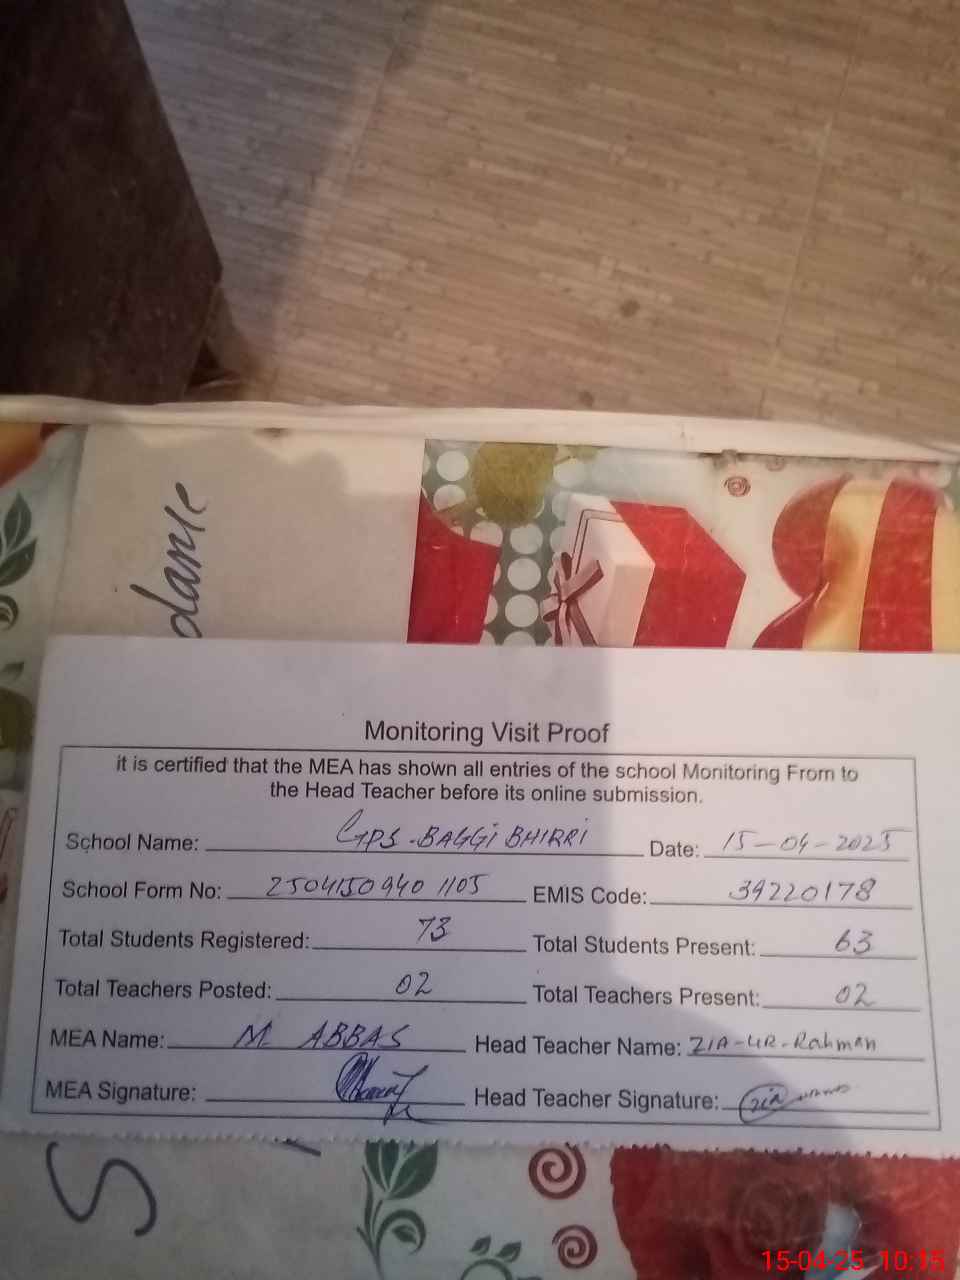 dance
Monitoring Visit Proof
it is certified that the MEA has shown all entries of the school Monitoring From to
the Head Teacher before its online submission.
School Name: GPS-BAGGI BHIRRI Date: 15-04-2025
School Form No: 2504150940 1105 EMIS Code: 39220178
Total Students Registered: 73 Total Students Present: 63
Total Teachers Posted: 02 Total Teachers Present: 02
MEA Name: M ABBAS Head Teacher Name: ZIA-UR-Rahman
MEA Signature: Head Teacher Signature: zia
S
15-04-25 10:15